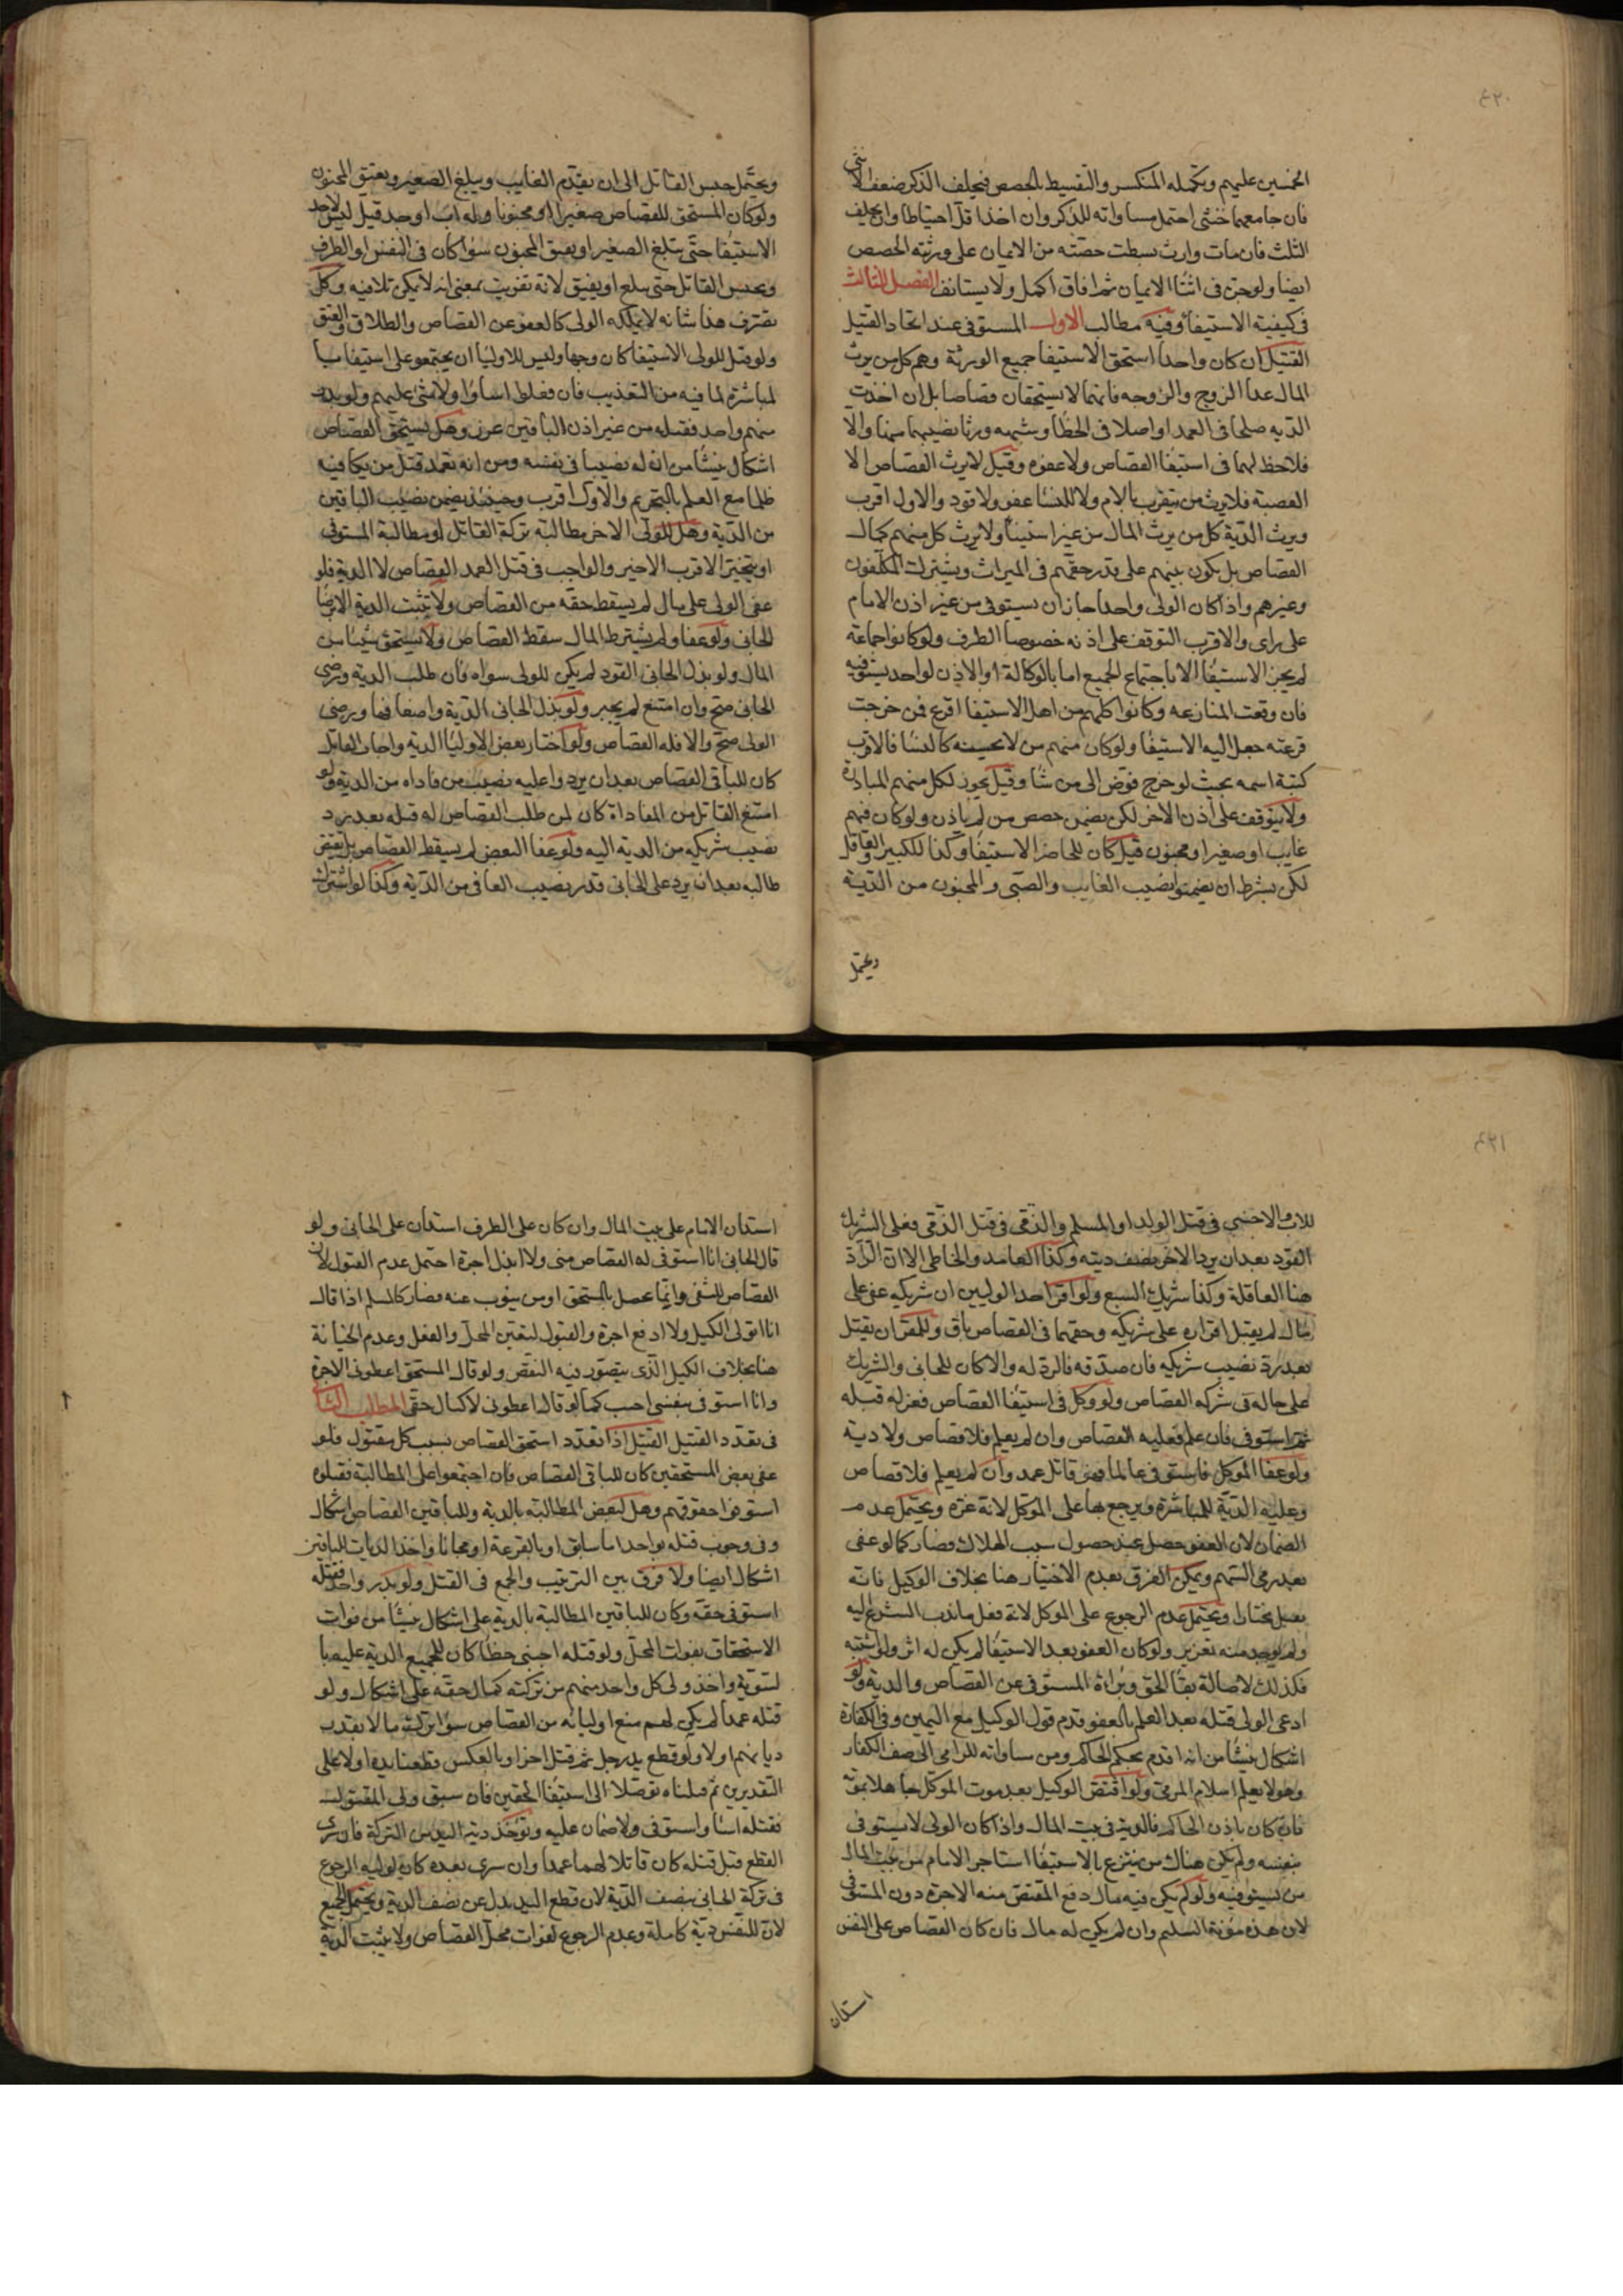 ٤٣٠
الخمسين عليهم وتكمله المنكسر والتقسيط بالحصص فيحلف الذكر ضعف الانثى
فان جامعهما خنثى احتمل مساواته للذكر وان اخذ اقل احتياطا وان يحلف
الثلث فان مات وارث بسطت حصته من الايمان على ورثته الحصص
ايضا ولو جن فى اثنا الايمان ثم افاق اكمل ولا يستانف الفصل الثالث
فى كيفية الاستيفا وفيه مطالب الاول المستوفى عند اتحاد القتيل
القتيل ان كان واحدا استحق الاستيفا جميع الورثة وهم كل من يرث
المال عدا الزوج والزوجه فانهما لا يستحقان قصاصا بل ان اخذت
الديه صلحا فى العمد او اصلا فى الخطا وشبهه ورثا نصيبهما منها والا
فلا حظ لهما فى استيفا القصاص ولا عفوه وقيل لا يرث القصاص الا
العصبة فلا يرث من يتقرب بالام ولا للنسا عفو ولا قود والاول اقرب
ويرث الدية كل من يرث المال من غير استثنا ولا يرث كل منهم كمال
القصاص بل يكون بينهم على قدر حقهم فى الميراث ويشترك المكلفون
وغيرهم واذا كان الولى واحدا جاز ان يستوفى من غير اذن الامام
على راى والاقرب التوقف على اذنه خصوصا الطرف ولو كانوا جماعة
لم يجز الاستيفا الا باجتماع الجميع اما بالوكالة او بالاذن لواحد يستوفيه
فان وقعت المنازعه وكانوا كلهم من اهل الاستيفا اقرع فمن خرجت
قرعته جعل اليه الاستيفا ولو كان منهم من لا يحسنه كالنسا فالاقرب
كتبة اسمه بحيث لو خرج فوض الى من شا وقيل يجوز لكل منهم المبادرة
ولا يتوقف على اذن الاخر لكن يضمن حصص من لم ياذن ولو كان فيهم
غايب او صغير او مجنون قيل كان للحاضر الاستيفا وكذا للكبير والعاقل
لكن بشرط ان يضمنوا نصيب الغايب والصبى والمجنون من الدية
ويحتمل
ويحتمل حبس القاتل الى ان يقدم الغايب ويبلغ الصغير ويفيق المجنون
ولو كان المستحق للقصاص صغيرا او مجنونا وله اب او جد قيل ليس لاحد
الاستيفا حتى يبلغ الصغير او يفيق المجنون سوا كان فى النفس او الطرف
ويحبس القاتل حتى يبلغ او يفيق لانه تفويت بمعنى انه لا يمكن تلافيه وكل
تصرف هذا شانه لا يملكه الولى كالعفو عن القصاص والطلاق والعتق
ولو قيل للولى الاستيفا كان وجها وليس للاوليا ان يجتمعو على استيفا ميا
لمباشرة لما فيه من التعذيب فان فعلوا اساوا ولا شى عليهم ولو بدر
منهم واحد فقتله من غير اذن الباقين عزر وهل يستحق القصاص
اشكال ينشا من ان له نصيبا فى نفسه ومن انه تعمد قتل من يكافيه
ظلما مع العلم بالتحريم والاول اقرب وحينئذ يضمن نصيب الباقين
من الدية وهل للولى الاخر مطالبة تركة القاتل او مطالبة المستوفى
او يتخير الاقرب الاخير والواجب فى قتل العمد القصاص لا الدية فلو
عفى الولى على مال لم يسقط حقه من القصاص ولا تثبت الدية الا برضا
الجانى ولو عفا ولم يشترط المال سقط القصاص ولا يستحق شيئا من
المال ولو بذل الجانى القود لم يكن للولى سواه فان طلب الدية ورضى
الجانى صح وان امتنع لم يجبر ولو بذل الجانى الدية واضعافها ورضى
الولى صح والا فله القصاص ولو اختار بعض الاوليا الدية واجاب القاتل
كان للباقى القصاص بعد ان يردوا عليه نصيب من فاداه من الدية ولو
امتنع القاتل من المفاداة كان لمن طلب القصاص له قتله بعد رد
نصيب شريكه من الدية اليه ولو عفا البعض لم يسقط القصاص بل يقتص
طالبه بعد ان يرد على الجانى قدر نصيب العافى من الدية وكذا لو اشترك
٤٣١
للاب والاجنبى فى قتل الولد او المسلم والذمى فى قتل الذمى فعلى الشريك
القود بعد ان يرد الاخر نصف ديته وكذا العامد والخاطى الا ان الراد
هنا العاقلة وكذا شريك السبع ولو اقر احد الوليين ان شريكه عفى على
مال لم يقبل اقراره على شريكه وحقهما فى القصاص باق وللمقر ان يقتل
بعد رد نصيب شريكه فان صدقه فالرد له والا كان للجانى والشريك
على حاله فى شركه القصاص ولو وكل فى استيفا القصاص فعزله قبله
ثم استوفى فان علم فعليه القصاص وان لم يعلم فلا قصاص ولا دية
ولو عفا الموكل فاستوفى عالما فهو قاتل عمد وان لم يعلم فلا قصاص
وعليه الدية للمباشرة ويرجع بها على الموكل لانه غره ويحتمل عدم
الضمان لان العفو حصل عند حصول سبب الهلاك فصار كما لو عفى
بعد رمى السهم ويمكن الفرق بعدم الاختيار هنا بخلاف الوكيل فانه
يعمل مختارا ويحتمل عدم الرجوع على الموكل لانه فعل ما ندب الشرع اليه
ولم يوجد منه تغرير ولو كان العفو بعد الاستيفا لم يكن له اثر ولو اشتبه
فكذلك لاصالة بقا الحق وبراة المستوفى عن القصاص والدية ولو
ادعى الولى قتله بعد العلم بالعفو قدم قول الوكيل مع اليمين وفى الكفارة
اشكال ينشا من انه اقدم بحكم الحاكم ومن مساواته للرامى الى صف الكفار
وهو لا يعلم اسلام المرمى ولو اقتص الوكيل بعد موت الموكل جاهلا بموته
فان كان باذن الحاكم فالدية فى بيت المال واذا كان الولى لا يستوفى
بنفسه ولم يكن هناك من يتبرع بالاستيفا استاجر الامام من بيت المال
من يستوفيه ولو لم يكن فيه مال دفع المقتص منه الاجرة دون المستوفى
لان هذه مؤنة التسليم وان لم يكن له مال فان كان القصاص على النفس
استدان
استدان الامام على بيت المال وان كان على الطرف استدان على الجانى ولو
قال الجانى انا استوفى له القصاص منى ولا ابذل اجرة احتمل عدم القبول لان
القصاص للتشفى وانما يحصل بالمستحق او من ينوب عنه فصار كالمسلم اذا قال
انا اتولى الكيل ولا ادفع اجرة والقبول لتعين المحل والفعل وعدم الخيانة
هنا بخلاف الكيل الذى يتصور فيه النقص ولو قال المستحق اعطونى الاجرة
وانا استوفى بنفسى اجيب كما لو قال اعطونى لاكتال حقى المطلب الثانى
فى تعدد القتيل القتيل اذا تعدد استحق القصاص بسبب كل مقتول فلو
عفى بعض المستحقين كان للباقى القصاص فان اجتمعوا على المطالبة فقتلوه
استوفوا حقوقهم وهل لبعض المطالبة بالدية وللباقين القصاص اشكال
وفى وجوب قتله بواحد اما سابق او بالقرعة او مجانا واخذ الديات للباقين
اشكال ايضا ولا فرق بين الترتيب والجمع فى القتل ولو بدر واحد فقتله
استوفى حقه وكان للباقين المطالبة بالدية على اشكال ينشا من فوات
الاستحقاق بفوات المحل ولو قتله اجنبى خطا كان للجميع الدية عليهم با
لتسوية واخذ ولى كل واحد منهم من تركته كمال حقه على اشكال ولو
قتله عمدا لم يكن لهم منع اوليائه من القصاص سوا ترك ما لا بقدر
دياتهم اولا ولو قطع يد رجل ثم قتل اخر او بالعكس قطعنا يده اولا على
التقديرين ثم قتلناه توصلا الى استيفا الحقين فان سبق ولى المقتول
فقتله اسا واستوفى ولا ضمان عليه وتؤخذ دية اليد من التركة فان سرى
القطع قبل قتله كان قاتلا لهما عمدا وان سرى بعده كان لوليه الرجوع
فى تركة الجانى بنصف الدية لان قطع اليد بدل عن نصف الدية ويحتمل الجميع
لان للنفس دية كاملة وعدم الرجوع لفوات محل القصاص ولا يثبت الدية